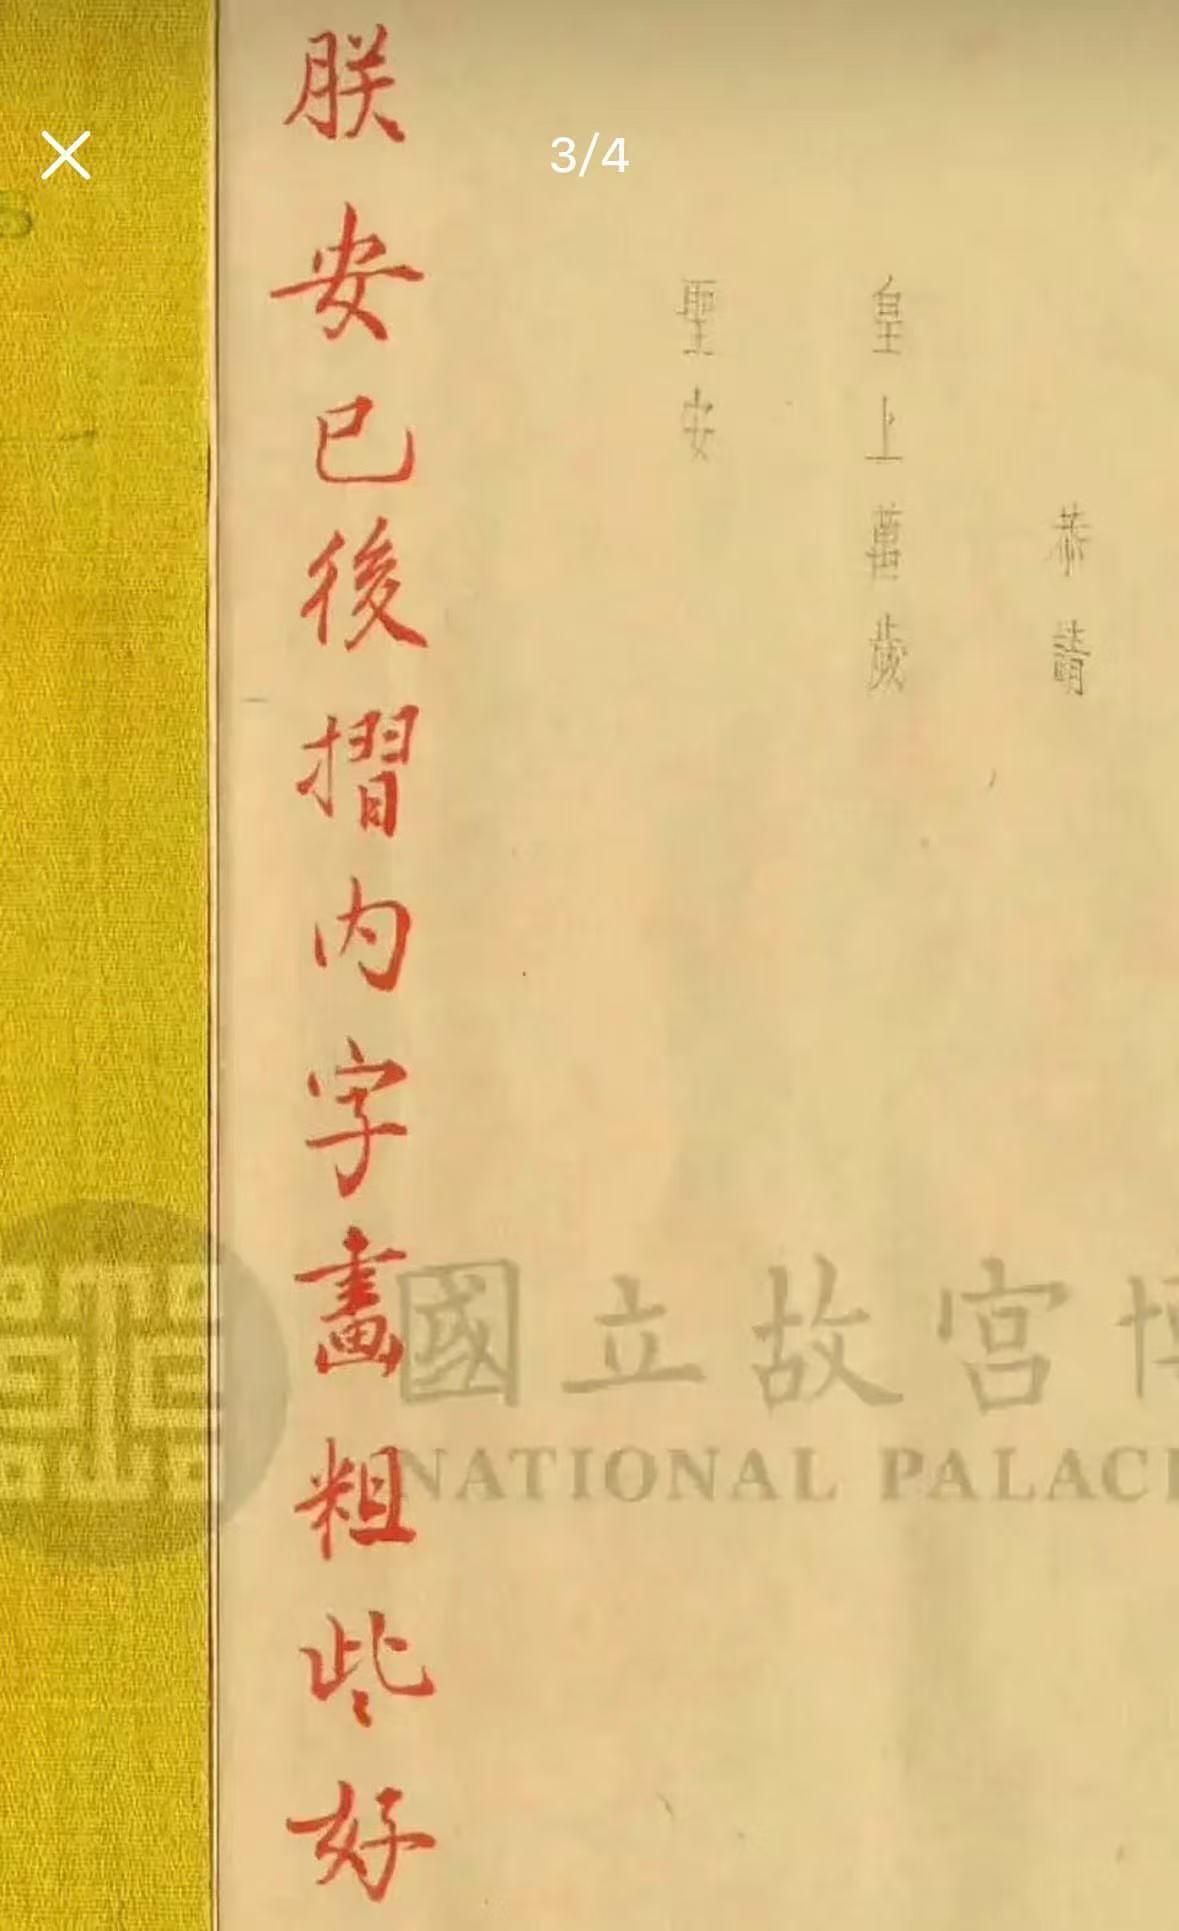 3/4
恭請
皇上萬歲
聖安
朕安已後摺內字畫粗些好
國立故宮博
NATIONAL PALACE